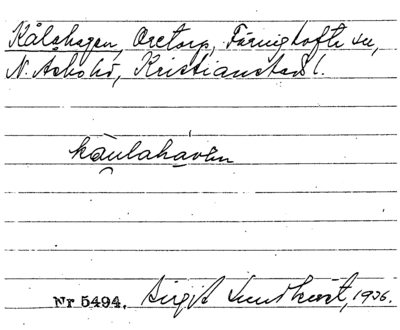 Kålahagen, Oretorp, Färingtofta sn,
N. Åsbo hd, Kristianstads l.
kåulahà̄vën
Nr 5494. Birgit Lundkvist, 1936.